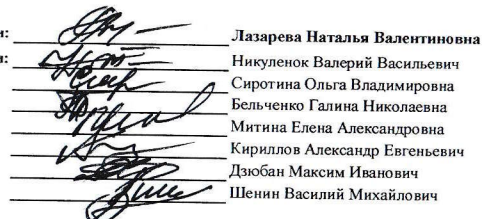 и: Лазарева Наталья Валентиновна
и: Никуленок Валерий Васильевич
Сиротина Ольга Владимировна
Бельченко Галина Николаевна
Митина Елена Александровна
Кириллов Александр Евгеньевич
Дзюбан Максим Иванович
Шенин Василий Михайлович